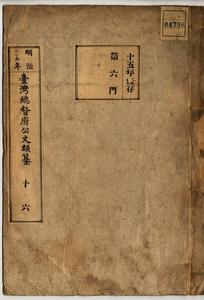 04796
十五年保存
第六門
明治
年
臺灣總督府公文類纂
十六